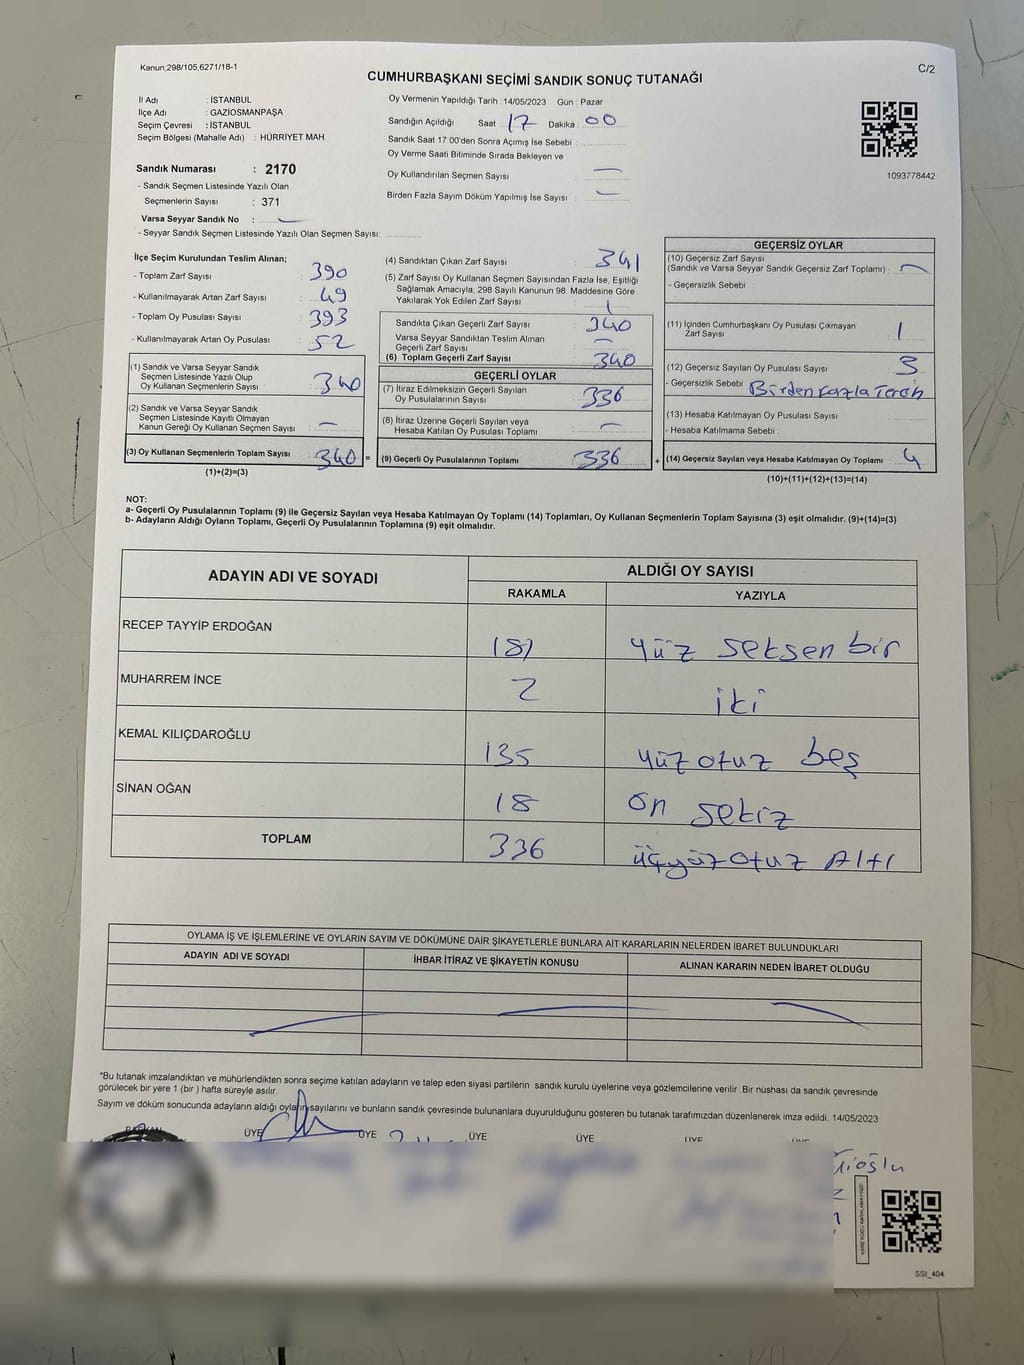 Kanun;298/105,6271/18-1
C/2
CUMHURBAŞKANI SEÇİMİ SANDIK SONUÇ TUTANAĞI
İl Adı : İSTANBUL
İlçe Adı : GAZİOSMANPAŞA
Seçim Çevresi : İSTANBUL
Seçim Bölgesi (Mahalle Adı) : HÜRRİYET MAH
Sandık Numarası : 2170
- Sandık Seçmen Listesinde Yazılı Olan
Seçmenlerin Sayısı : 371
Varsa Seyyar Sandık No : —
- Seyyar Sandık Seçmen Listesinde Yazılı Olan Seçmen Sayısı:
Oy Vermenin Yapıldığı Tarih : 14/05/2023 Gün : Pazar
Sandığın Açıldığı Saat 17 Dakika : 00
Sandık Saat 17.00'den Sonra Açımış İse Sebebi :
Oy Verme Saati Bitiminde Sırada Bekleyen ve
Oy Kullandırılan Seçmen Sayısı —
Birden Fazla Sayım Döküm Yapılmış İse Sayısı : —
1093778442
İlçe Seçim Kurulundan Teslim Alınan;
- Toplam Zarf Sayısı 390
- Kullanılmayarak Artan Zarf Sayısı : 49
- Toplam Oy Pusulası Sayısı : 393
- Kullanılmayarak Artan Oy Pusulası : 52
(1) Sandık ve Varsa Seyyar Sandık
Seçmen Listesinde Yazılı Olup
Oy Kullanan Seçmenlerin Sayısı : 340
(2) Sandık ve Varsa Seyyar Sandık
Seçmen Listesinde Kayıtlı Olmayan
Kanun Gereği Oy Kullanan Seçmen Sayısı : —
(3) Oy Kullanan Seçmenlerin Toplam Sayısı : 340 =
(1)+(2)=(3)
(4) Sandıktan Çıkan Zarf Sayısı : 341
(5) Zarf Sayısı Oy Kullanan Seçmen Sayısından Fazla İse, Eşitliği
Sağlamak Amacıyla; 298 Sayılı Kanunun 98. Maddesine Göre
Yakılarak Yok Edilen Zarf Sayısı : 1
Sandıkta Çıkan Geçerli Zarf Sayısı : 340
Varsa Seyyar Sandıktan Teslim Alınan
Geçerli Zarf Sayısı : —
(6) Toplam Geçerli Zarf Sayısı : 340
GEÇERLİ OYLAR
(7) İtiraz Edilmeksizin Geçerli Sayılan
Oy Pusulalarının Sayısı : 336
(8) İtiraz Üzerine Geçerli Sayılan veya
Hesaba Katılan Oy Pusulası Toplamı : —
(9) Geçerli Oy Pusulalarının Toplamı : 336 +
GEÇERSİZ OYLAR
(10) Geçersiz Zarf Sayısı
(Sandık ve Varsa Seyyar Sandık Geçersiz Zarf Toplamı) : —
- Geçersizlik Sebebi :
(11) İçinden Cumhurbaşkanı Oy Pusulası Çıkmayan
Zarf Sayısı : 1
(12) Geçersiz Sayılan Oy Pusulası Sayısı : 3
- Geçersizlik Sebebi : Birden fazla Tercih
(13) Hesaba Katılmayan Oy Pusulası Sayısı :
- Hesaba Katılmama Sebebi :
(14) Geçersiz Sayılan veya Hesaba Katılmayan Oy Toplamı : 4
(10)+(11)+(12)+(13)=(14)
NOT:
a- Geçerli Oy Pusulalarının Toplamı (9) ile Geçersiz Sayılan veya Hesaba Katılmayan Oy Toplamı (14) Toplamları, Oy Kullanan Seçmenlerin Toplam Sayısına (3) eşit olmalıdır. (9)+(14)=(3)
b- Adayların Aldığı Oyların Toplamı, Geçerli Oy Pusulalarının Toplamına (9) eşit olmalıdır.
ADAYIN ADI VE SOYADI
ALDIĞI OY SAYISI
RAKAMLA YAZIYLA
RECEP TAYYİP ERDOĞAN 181 yüz seksen bir
MUHARREM İNCE 2 iki
KEMAL KILIÇDAROĞLU 135 yüz otuz beş
SİNAN OĞAN 18 on sekiz
TOPLAM 336 üçyüz otuz Altı
OYLAMA İŞ VE İŞLEMLERİNE VE OYLARIN SAYIM VE DÖKÜMÜNE DAİR ŞİKAYETLERLE BUNLARA AİT KARARLARIN NELERDEN İBARET BULUNDUKLARI
ADAYIN ADI VE SOYADI İHBAR İTİRAZ VE ŞİKAYETİN KONUSU ALINAN KARARIN NEDEN İBARET OLDUĞU
*Bu tutanak imzalandıktan ve mühürlendikten sonra seçime katılan adayların ve talep eden siyasi partilerin sandık kurulu üyelerine veya gözlemcilerine verilir. Bir nüshası da sandık çevresinde
görülecek bir yere 1 (bir) hafta süreyle asılır.
Sayım ve döküm sonucunda adayların aldığı oyların sayılarını ve bunların sandık çevresinde bulunanlara duyurulduğunu gösteren bu tutanak tarafımızdan düzenlenerek imza edildi. 14/05/2023
BAŞKAN ÜYE ÜYE ÜYE ÜYE ÜYE ÜYE
SSI_404